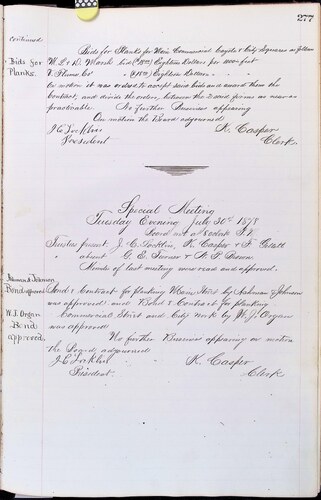 277
Continued.
Bids for Planks for Main Commercial & City Squares as follows
Bids for
Planks.
W. L. & D. Marsh bid ($18.00) Eighteen Dollars per 1000 feet
($18.00) Eighteen Dollars
On motion it was ordered to accept said bids and award them the
Contract, and divide the orders, between the 2 said firms as near as
practicable. No further Business appearing
On motion the Board adjourned
President
K. Casper
Clerk.
Special Meeting
Tuesday Evening July 30th 1878
Board met at 8 o'clock P.M.
Trustees present J. C. K. Casper & F.
absent G. E. & H. P.
Minutes of last meeting were read and approved.
Johnson
Bond approved
Bond & Contract for planking Main Street by & Johnson
was approved. and Bond & Contract for planking
W. J. Organ
Bond
approved.
Commercial Street and City by W. J. Organ
was approved
No further Business appearing on motion
the Board adjourned
President.
K. Casper
Clerk